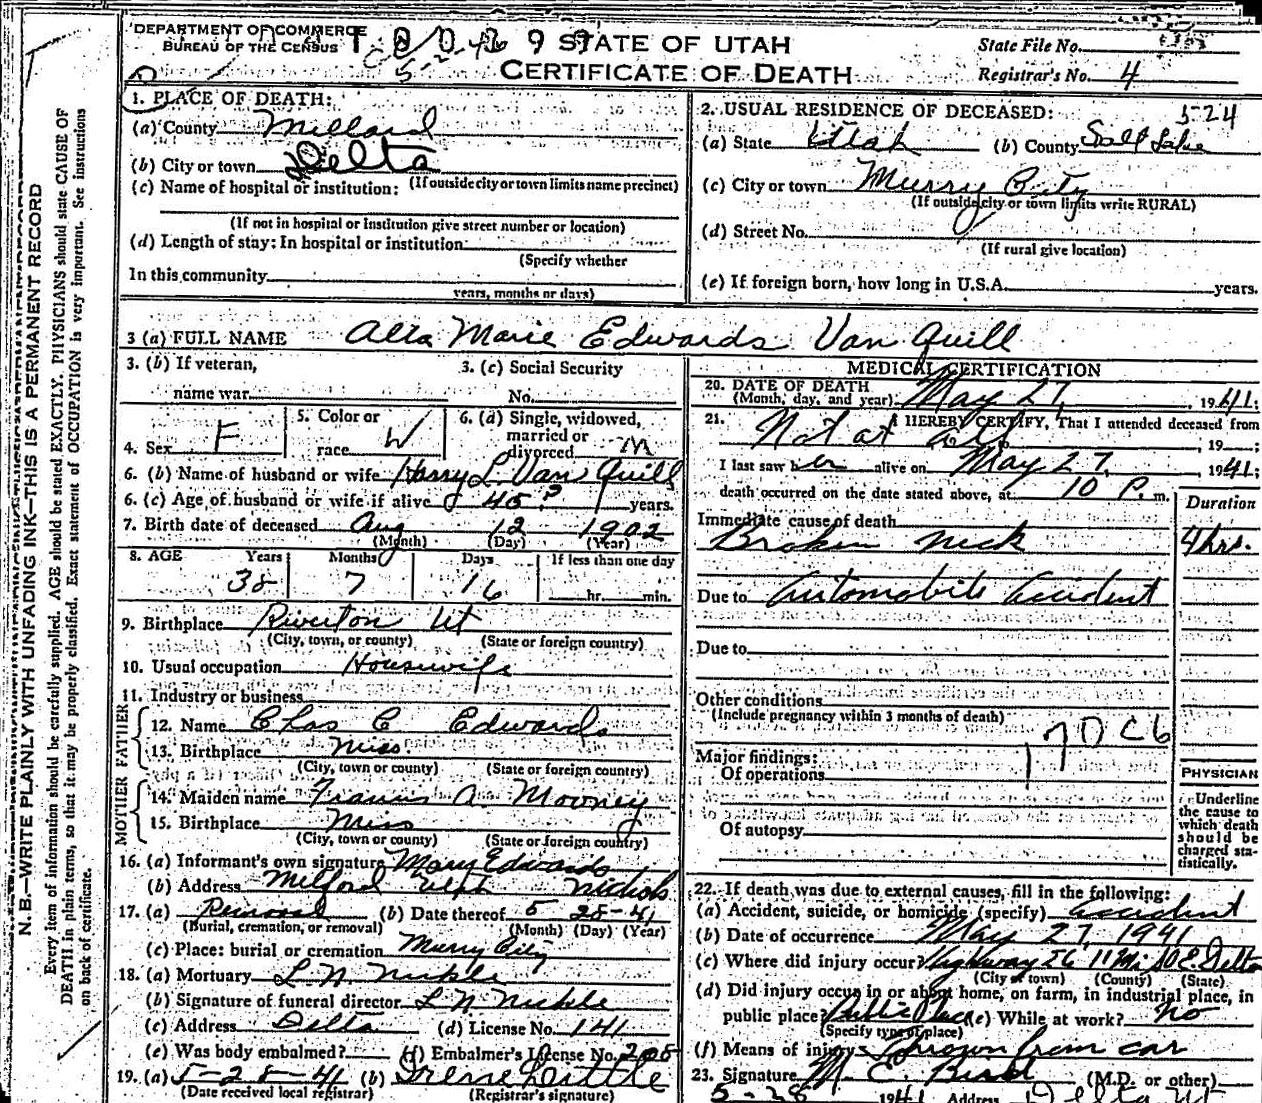 DEPARTMENT OF COMMERCE
BUREAU OF THE CENSUS
STATE OF UTAH
CERTIFICATE OF DEATH
State File No.
Registrar's No. 4
1. PLACE OF DEATH:
(a) County Millard
(b) City or town Delta
(If outside city or town limits name precinct)
(c) Name of hospital or institution:
(If not in hospital or institution give street number or location)
(d) Length of stay: In hospital or institution
(Specify whether
In this community
years, months or days)
2. USUAL RESIDENCE OF DECEASED: 524
(a) State Utah (b) County Salt Lake
(c) City or town Murry City
(If outside city or town limits write RURAL)
(d) Street No.
(If rural give location)
(e) If foreign born, how long in U.S.A. years.
3 (a) FULL NAME Alta Marie Edwards Van Quill
3. (b) If veteran,
name war
3. (c) Social Security
No.
4. Sex F
5. Color or
race W
6. (a) Single, widowed,
married or
divorced M
6. (b) Name of husband or wife Harry L. Van Quill
6. (c) Age of husband or wife if alive 45? years.
7. Birth date of deceased Aug 12 1902
(Month) (Day) (Year)
8. AGE Years Months Days If less than one day
38 7 16 hr. min.
9. Birthplace Riverton Ut
(City, town, or county) (State or foreign country)
10. Usual occupation Housewife
11. Industry or business
FATHER
12. Name Chas C Edwards
13. Birthplace Miss
(City, town or county) (State or foreign country)
MOTHER
14. Maiden name Francis A. Mooney
15. Birthplace Miss
(City, town or county) (State or foreign country)
16. (a) Informant's own signature Mary Edwards
Nichols
(b) Address Milford Utah
17. (a) Removal (b) Date thereof 5 28-41
(Burial, cremation, or removal) (Month) (Day) (Year)
(c) Place: burial or cremation Murry City
18. (a) Mortuary L. N. Nickle
(b) Signature of funeral director L N. Nickle
(c) Address Delta (d) License No. 141
(e) Was body embalmed? (f) Embalmer's License No. 205
19. (a) 5-28-41 (b) Irene Little
(Date received local registrar) (Registrar's signature)
MEDICAL CERTIFICATION
20. DATE OF DEATH
(Month, day, and year) May 27, 1941;
21. I HEREBY CERTIFY, That I attended deceased from
Not at all, 19 ;
I last saw her alive on May 27, 1941;
death occurred on the date stated above, at 10 P. m.
Duration
Immediate cause of death
Broken neck 4 hrs.
Due to Automobile Accident
Due to
Other conditions
(Include pregnancy within 3 months of death)
170 C6
Major findings:
Of operations
Of autopsy
PHYSICIAN
Underline
the cause to
which death
should be
charged sta-
tistically.
22. If death was due to external causes, fill in the following:
(a) Accident, suicide, or homicide (specify) Accident
(b) Date of occurrence May 27, 1941
(c) Where did injury occur? Highway 26 11 Mi SO E Delta
(City or town) (County) (State)
(d) Did injury occur in or about home, on farm, in industrial place, in
public place? Public Place (e) While at work? No
(Specify type of place)
(f) Means of injury Thrown from car
23. Signature M. E. Bird (M.D. or other)
5-28 1941 Address Delta Ut
N. B.—WRITE PLAINLY WITH UNFADING INK—THIS IS A PERMANENT RECORD
Every item of information should be carefully supplied. AGE should be stated EXACTLY. PHYSICIANS should state CAUSE OF
DEATH in plain terms, so that it may be properly classified. Exact statement of OCCUPATION is very important. See instructions
on back of certificate.